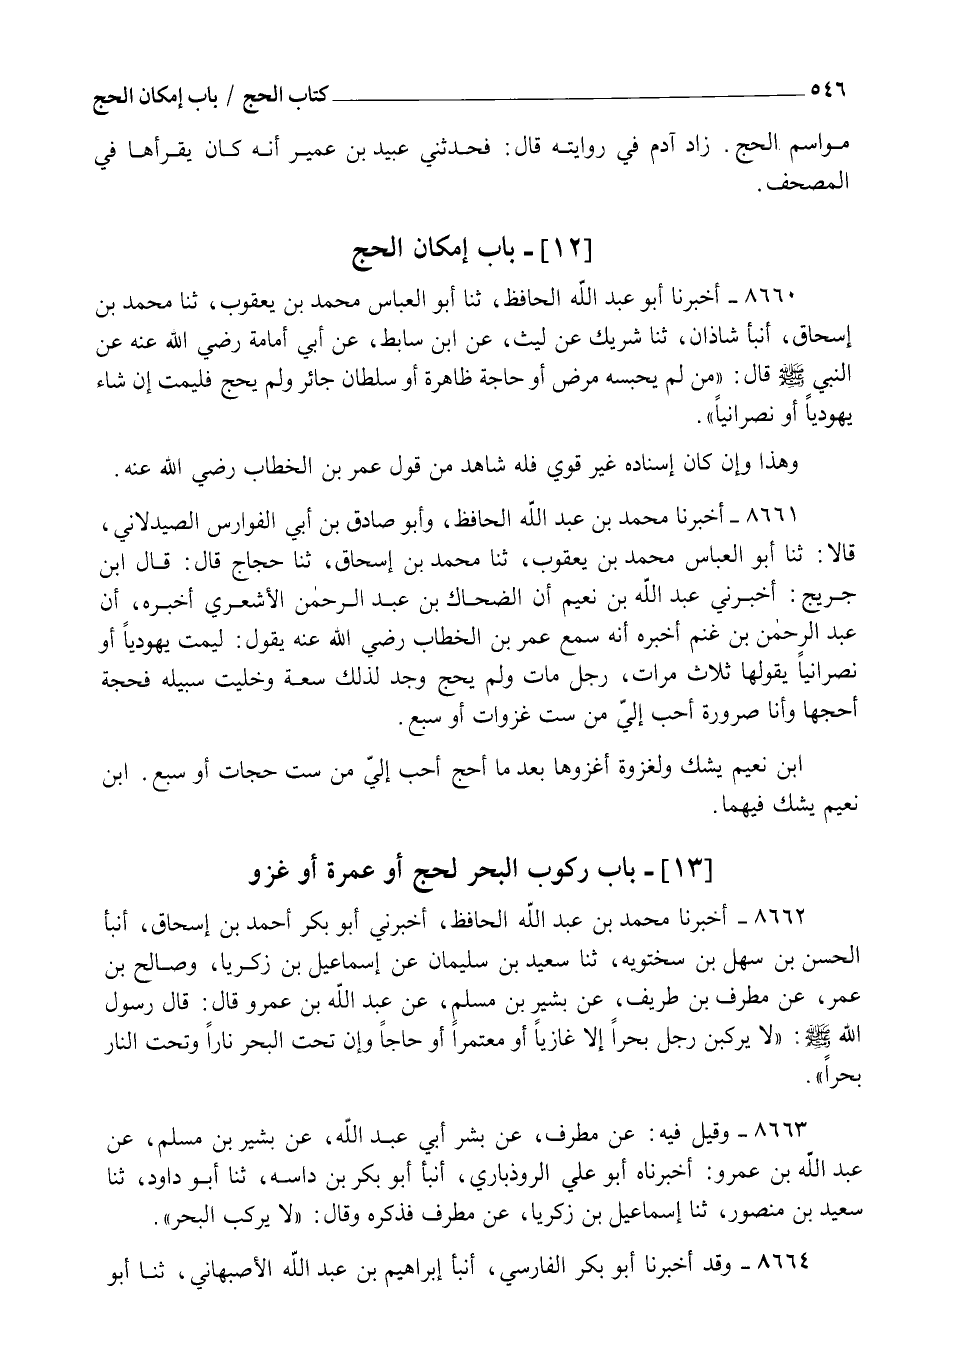 ٥٤٦ كتاب الحج / باب إمكان الحج
مواسم الحج. زاد آدم في روايته قال: فحدثني عبيد بن عمير أنه كان يقرأها في
المصحف.
[١٢] ـ باب إمكان الحج
٨٦٦٠ ـ أخبرنا أبو عبد اللّه الحافظ، ثنا أبو العباس محمد بن يعقوب، ثنا محمد بن
إسحاق، أنبأ شاذان، ثنا شريك عن ليث، عن ابن سابط، عن أبي أمامة رضي الله عنه عن
النبي ﷺ قال: «من لم يحبسه مرض أو حاجة ظاهرة أو سلطان جائر ولم يحج فليمت إن شاء
يهودياً أو نصرانياً».
وهذا وإن كان إسناده غير قوي فله شاهد من قول عمر بن الخطاب رضي الله عنه.
٨٦٦١ ـ أخبرنا محمد بن عبد اللّه الحافظ، وأبو صادق بن أبي الفوارس الصيدلاني،
قالا: ثنا أبو العباس محمد بن يعقوب، ثنا محمد بن إسحاق، ثنا حجاج قال: قال ابن
جريج: أخبرني عبد اللّه بن نعيم أن الضحاك بن عبد الرحمٰن الأشعري أخبره، أن
عبد الرحمٰن بن غنم أخبره أنه سمع عمر بن الخطاب رضي الله عنه يقول: ليمت يهودياً أو
نصرانياً يقولها ثلاث مرات، رجل مات ولم يحج وجد لذلك سعة وخليت سبيله فحجة
أحجها وأنا صرورة أحب إليّ من ست غزوات أو سبع.
ابن نعيم يشك ولغزوة أغزوها بعد ما أحج أحب إليّ من ست حجات أو سبع. ابن
نعيم يشك فيهما.
[١٣] ـ باب ركوب البحر لحج أو عمرة أو غزو
٨٦٦٢ ـ أخبرنا محمد بن عبد اللّه الحافظ، أخبرني أبو بكر أحمد بن إسحاق، أنبأ
الحسن بن سهل بن سختويه، ثنا سعيد بن سليمان عن إسماعيل بن زكريا، وصالح بن
عمر، عن مطرف بن طريف، عن بشير بن مسلم، عن عبد اللّه بن عمرو قال: قال رسول
الله ﷺ: «لا يركبن رجل بحراً إلا غازياً أو معتمراً أو حاجاً وإن تحت البحر ناراً وتحت النار
بحراً».
٨٦٦٣ ـ وقيل فيه: عن مطرف، عن بشر أبي عبد اللّه، عن بشير بن مسلم، عن
عبد اللّه بن عمرو: أخبرناه أبو علي الروذباري، أنبأ أبو بكر بن داسه، ثنا أبو داود، ثنا
سعيد بن منصور، ثنا إسماعيل بن زكريا، عن مطرف فذكره وقال: «لا يركب البحر».
٨٦٦٤ ـ وقد أخبرنا أبو بكر الفارسي، أنبأ إبراهيم بن عبد اللّه الأصبهاني، ثنا أبو